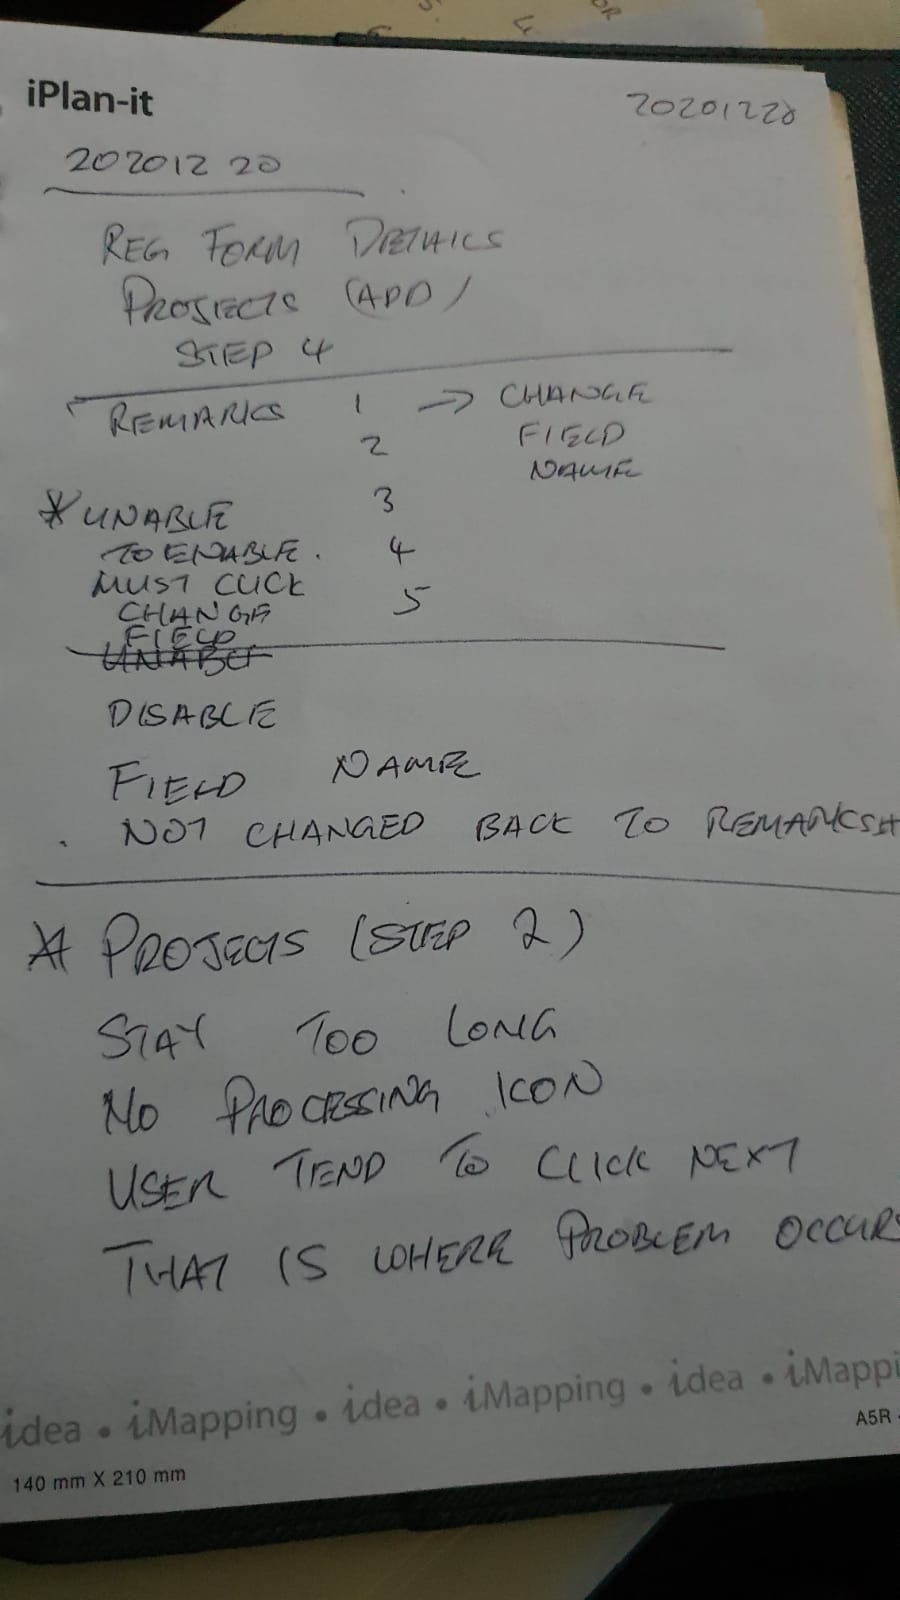 iPlan-it
20201228
202012 20
REG FORM DETAILS
PROJECTS (ADD)
STEP 4
REMARKS 1 → CHANGE
2 FIELD
NAME
3
* UNABLE
TO ENABLE. 4
MUST CLICK
5
CHANGE
FIELD
DISABLE
FIELD NAME
. NOT CHANGED BACK TO REMARKS#
* PROJECTS (STEP 2)
STAY TOO LONG
NO PROCESSING ICON
USER TEND TO CLICK NEXT
THAT IS WHERE PROBLEM OCCURS
idea • iMapping • idea • iMapping • idea • iMappi
A5R
140 mm X 210 mm